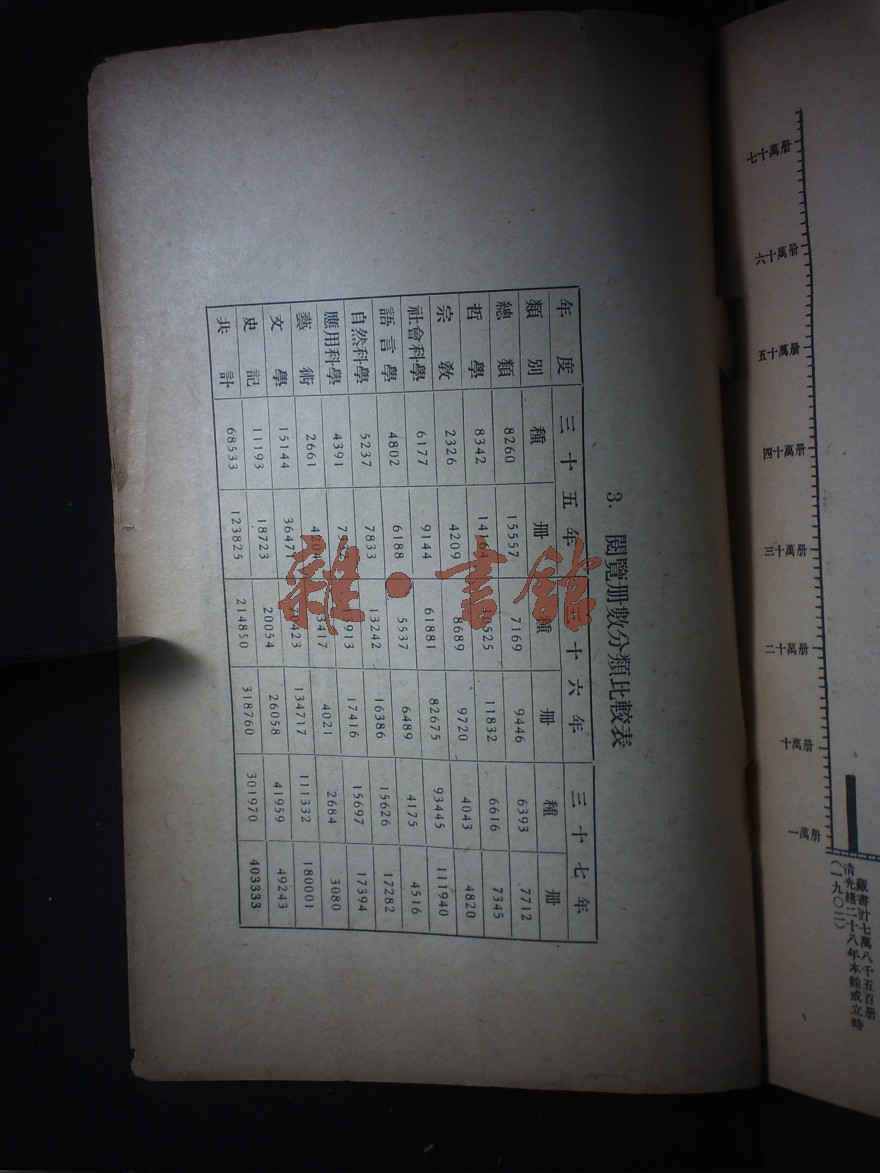 3. 閱覽册數分類比較表
年度 三十五年 三十六年 三十七年
類別 種 册 種 册 種 册
總類 8260 15557 7169 9446 6393 7712
哲學 8342 11832 6616 7345
宗教 2326 4209 8689 9720 4043 4820
社會科學 6177 9144 61881 82675 93445 111940
語言學 4802 6188 5537 6489 4175 4516
自然科學 5237 7833 13242 16386 15626 17282
應用科學 4391 17416 15697 17394
藝術 2661 4021 2684 3080
文學 15144 36471 134717 111332 180001
史記 11193 18723 20054 26058 41959 49243
共計 68533 123825 214850 318760 301970 403333
雜·書館
七十萬册
六十萬册
五十萬册
四十萬册
三十萬册
二十萬册
十萬册
一萬册
藏書計七萬八千五百册
清光緒二十八年本館成立時
(一九〇二)